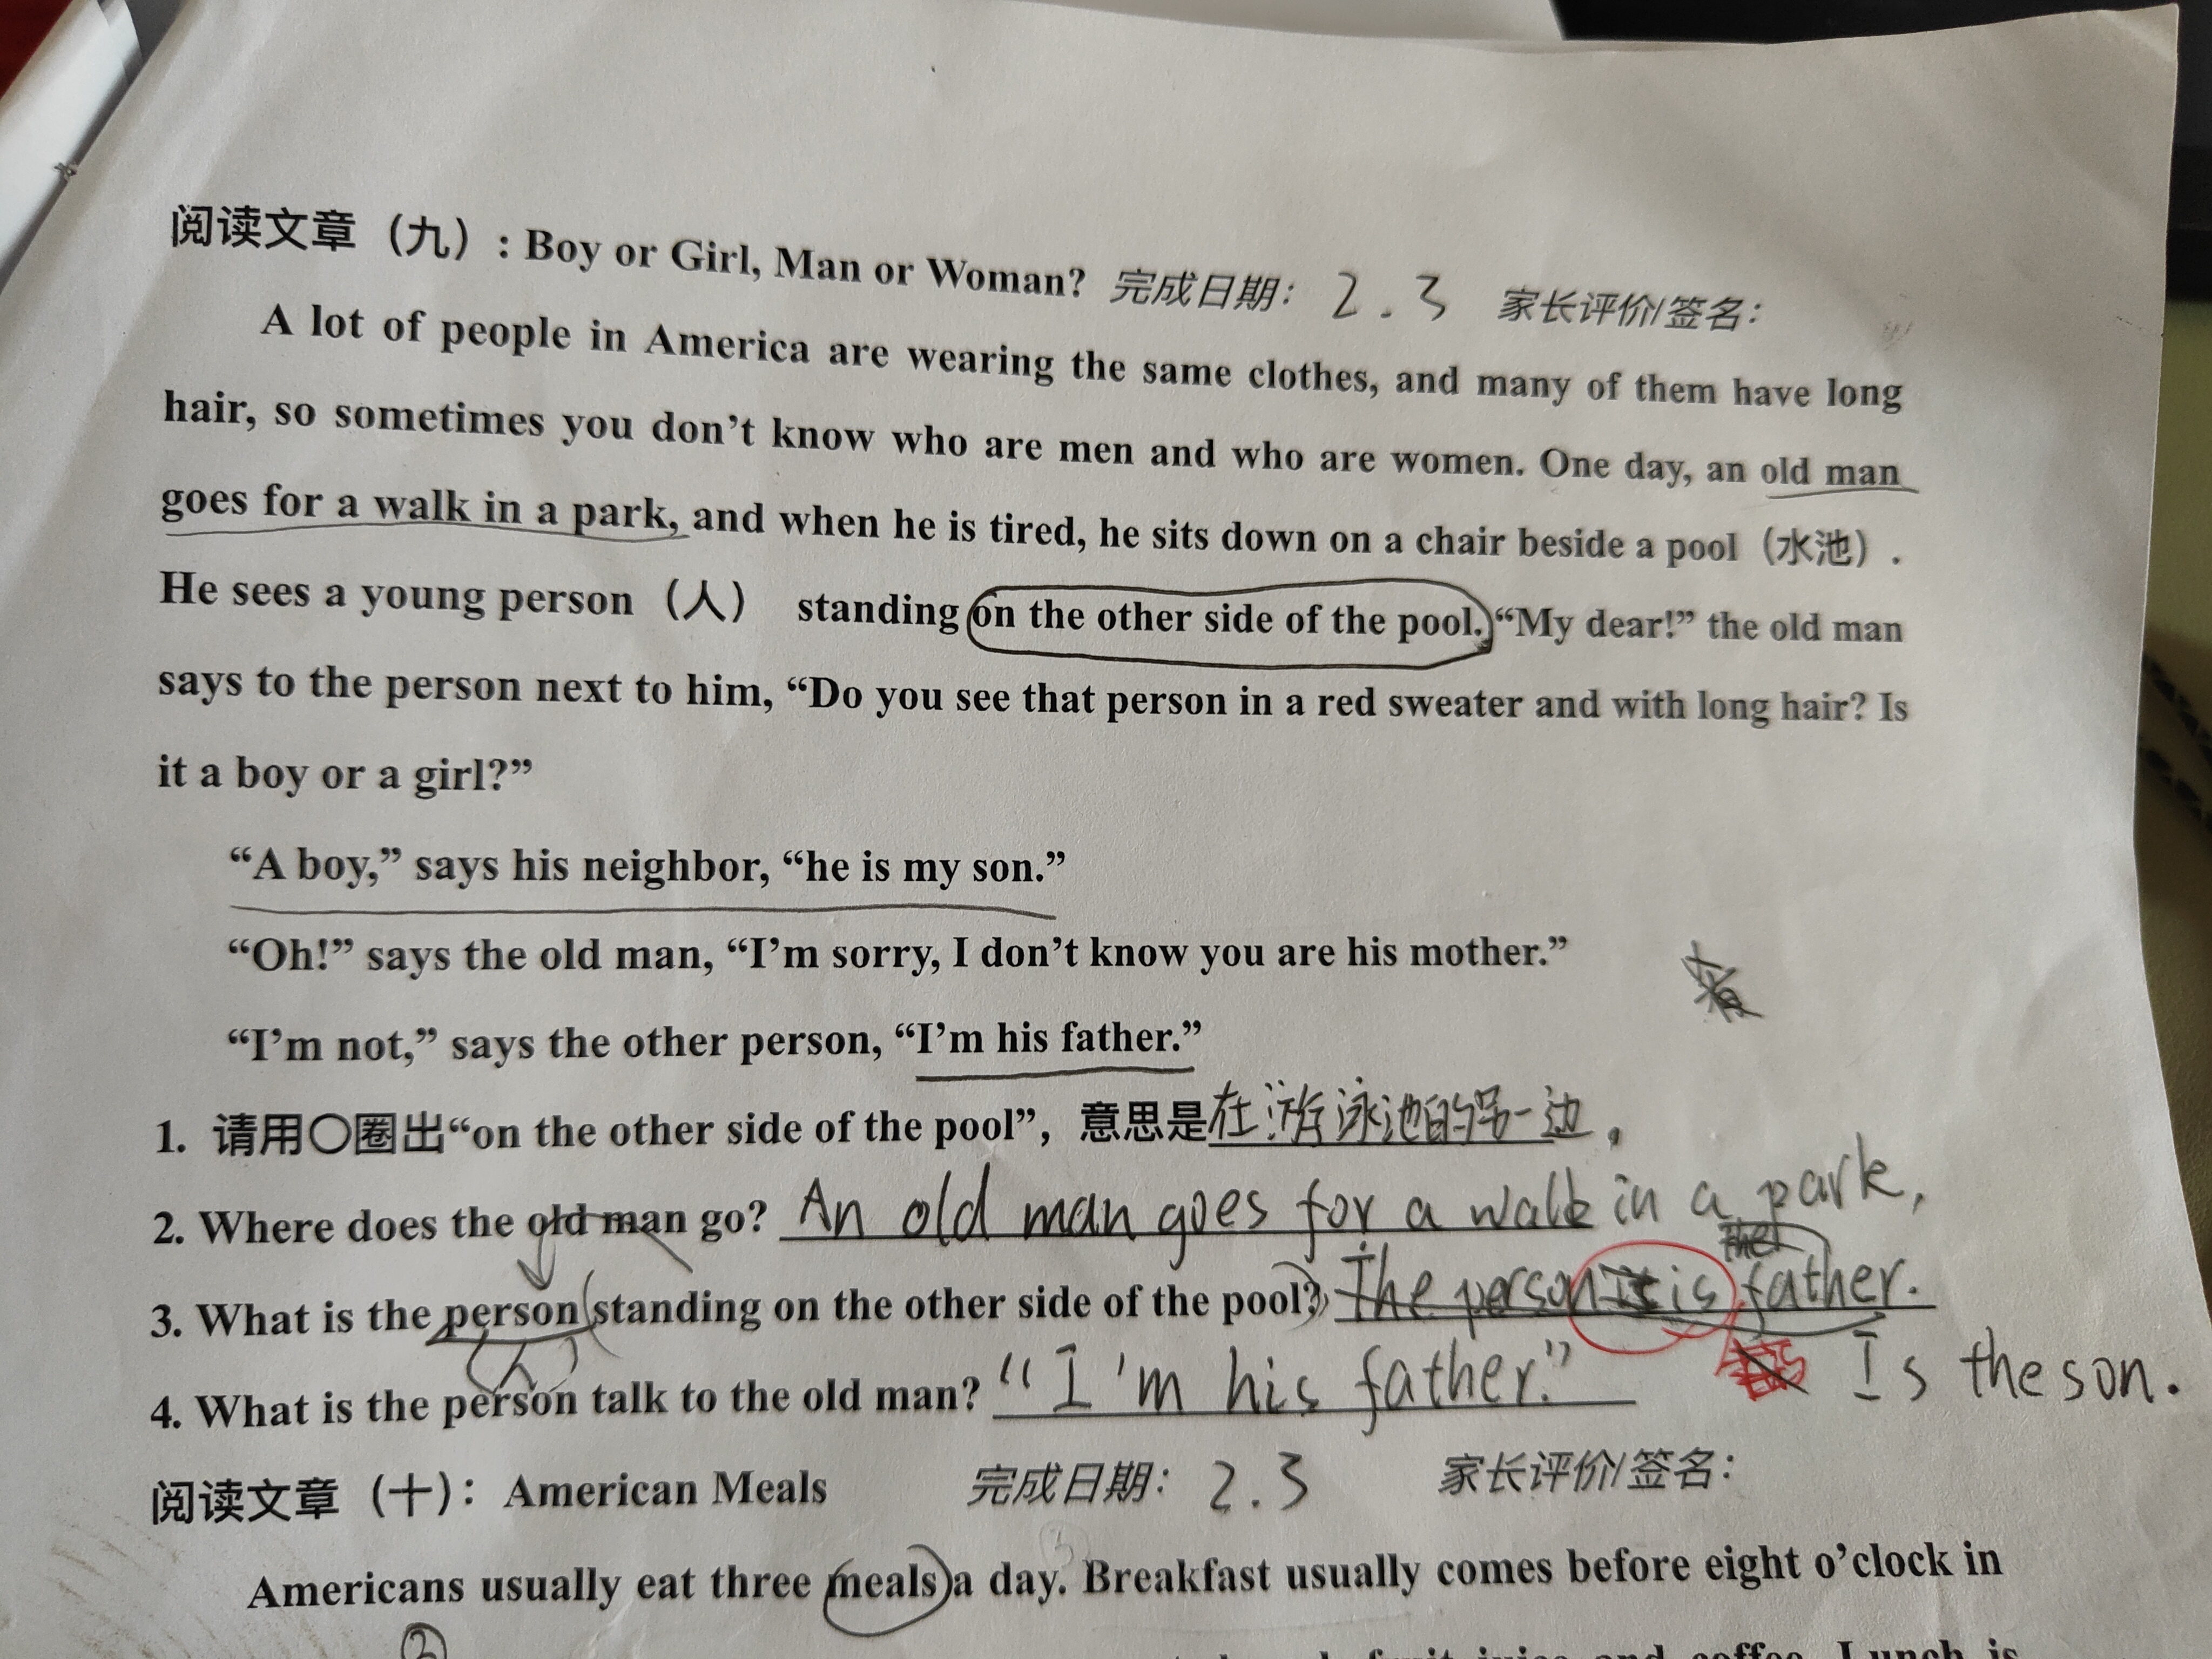 阅读文章（九）: Boy or Girl, Man or Woman? 完成日期： 2.3 家长评价/签名：
A lot of people in America are wearing the same clothes, and many of them have long
hair, so sometimes you don’t know who are men and who are women. One day, an old man
goes for a walk in a park, and when he is tired, he sits down on a chair beside a pool（水池）.
He sees a young person（人） standing on the other side of the pool. “My dear!” the old man
says to the person next to him, “Do you see that person in a red sweater and with long hair? Is
it a boy or a girl?”
“A boy,” says his neighbor, “he is my son.”
“Oh!” says the old man, “I’m sorry, I don’t know you are his mother.”
“I’m not,” says the other person, “I’m his father.”
1. 请用〇圈出“on the other side of the pool”，意思是在游泳池的另一边.
2. Where does the old man go? An old man goes for a walk in a park.
3. What is the person standing on the other side of the pool? The person is father.
(人)
Is the son.
4. What is the person talk to the old man? “I'm his father.”
阅读文章（十）： American Meals 完成日期： 2.3 家长评价/签名：
Americans usually eat three meals a day. Breakfast usually comes before eight o’clock in
②
fruit juice and coffee. Lunch is